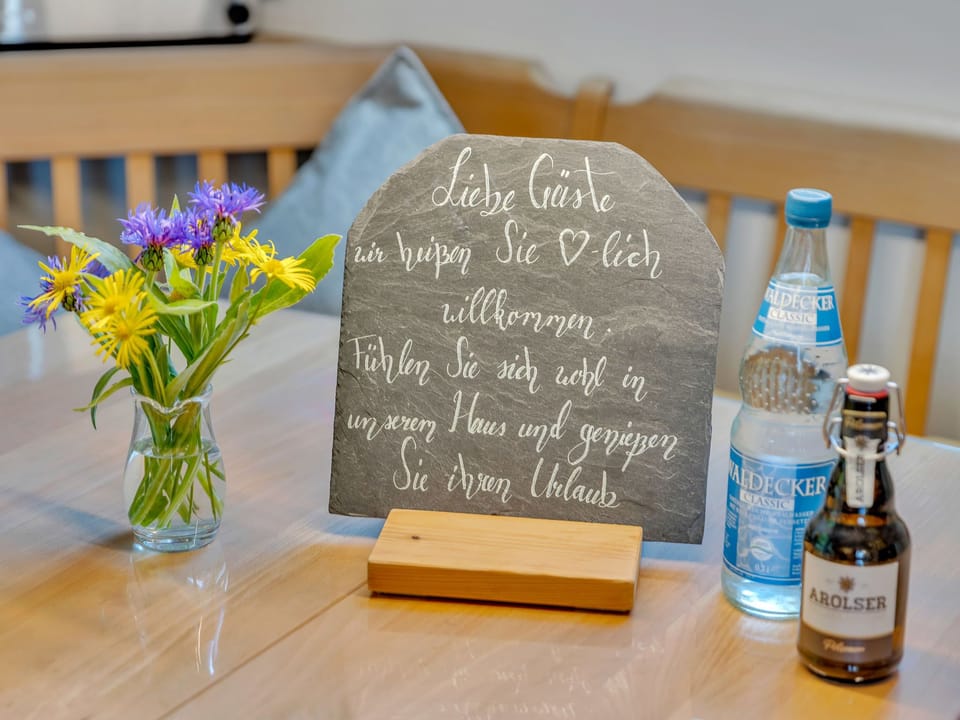 Liebe Gäste
wir heißen Sie ♡-lich
willkommen.
Fühlen Sie sich wohl in
unserem Haus und genießen
Sie ihren Urlaub
WALDECKER
CLASSIC
WALDECKER
CLASSIC
AROLSER
AROLSER
Pilsener